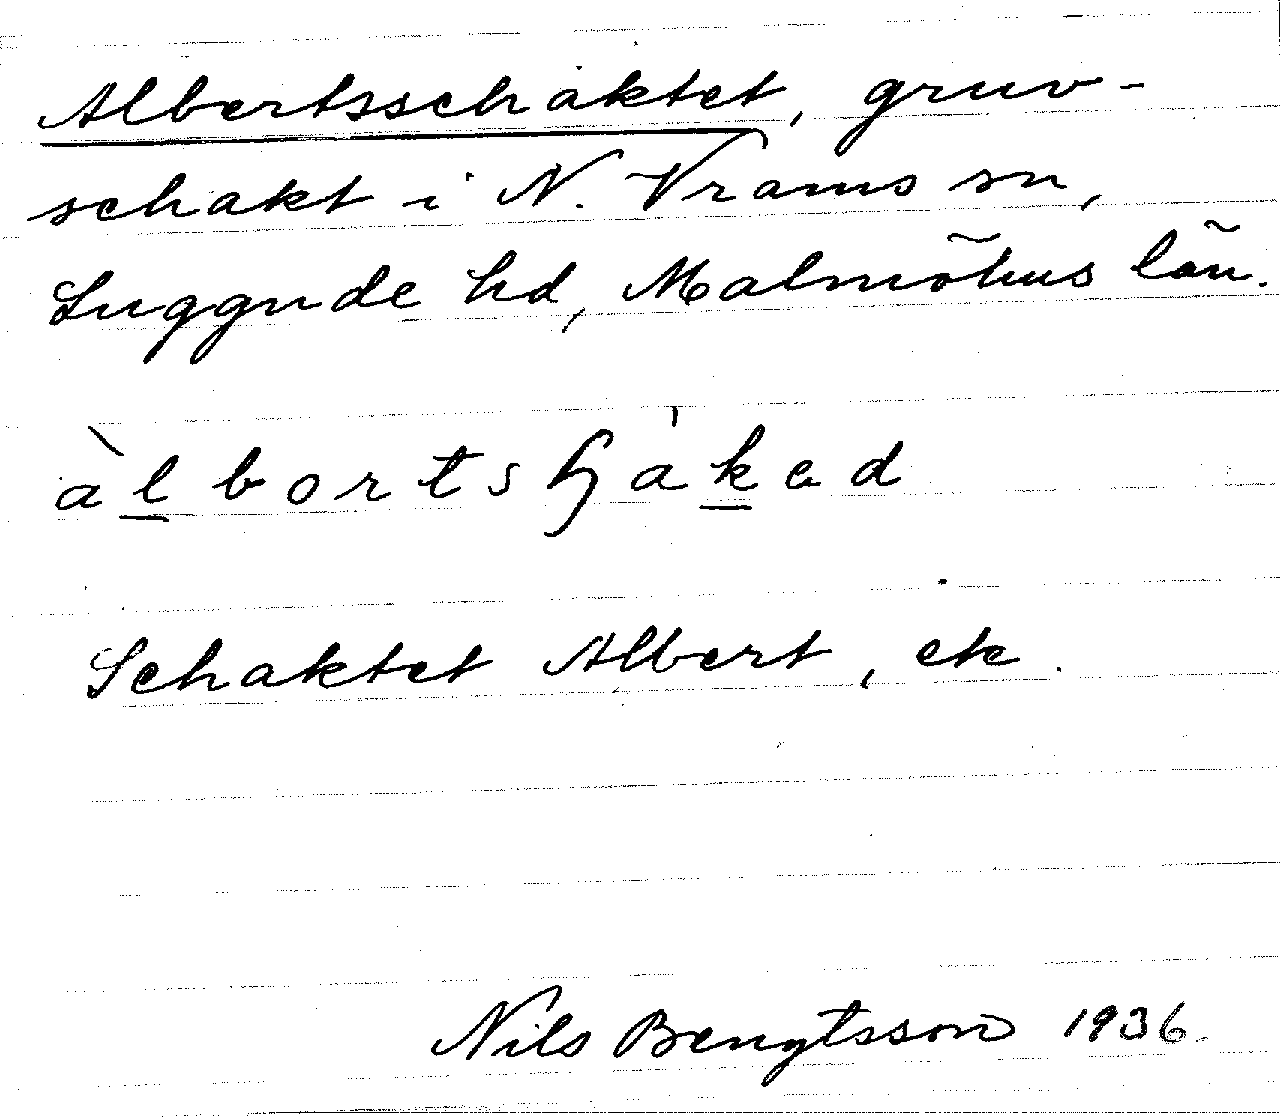 Albertsschaktet, gruv-
schakt i N. Vrams sn,
Luggude hd, Malmöhus län.
Schaktet Albert, ek.
Nils Bengtsson 1936.